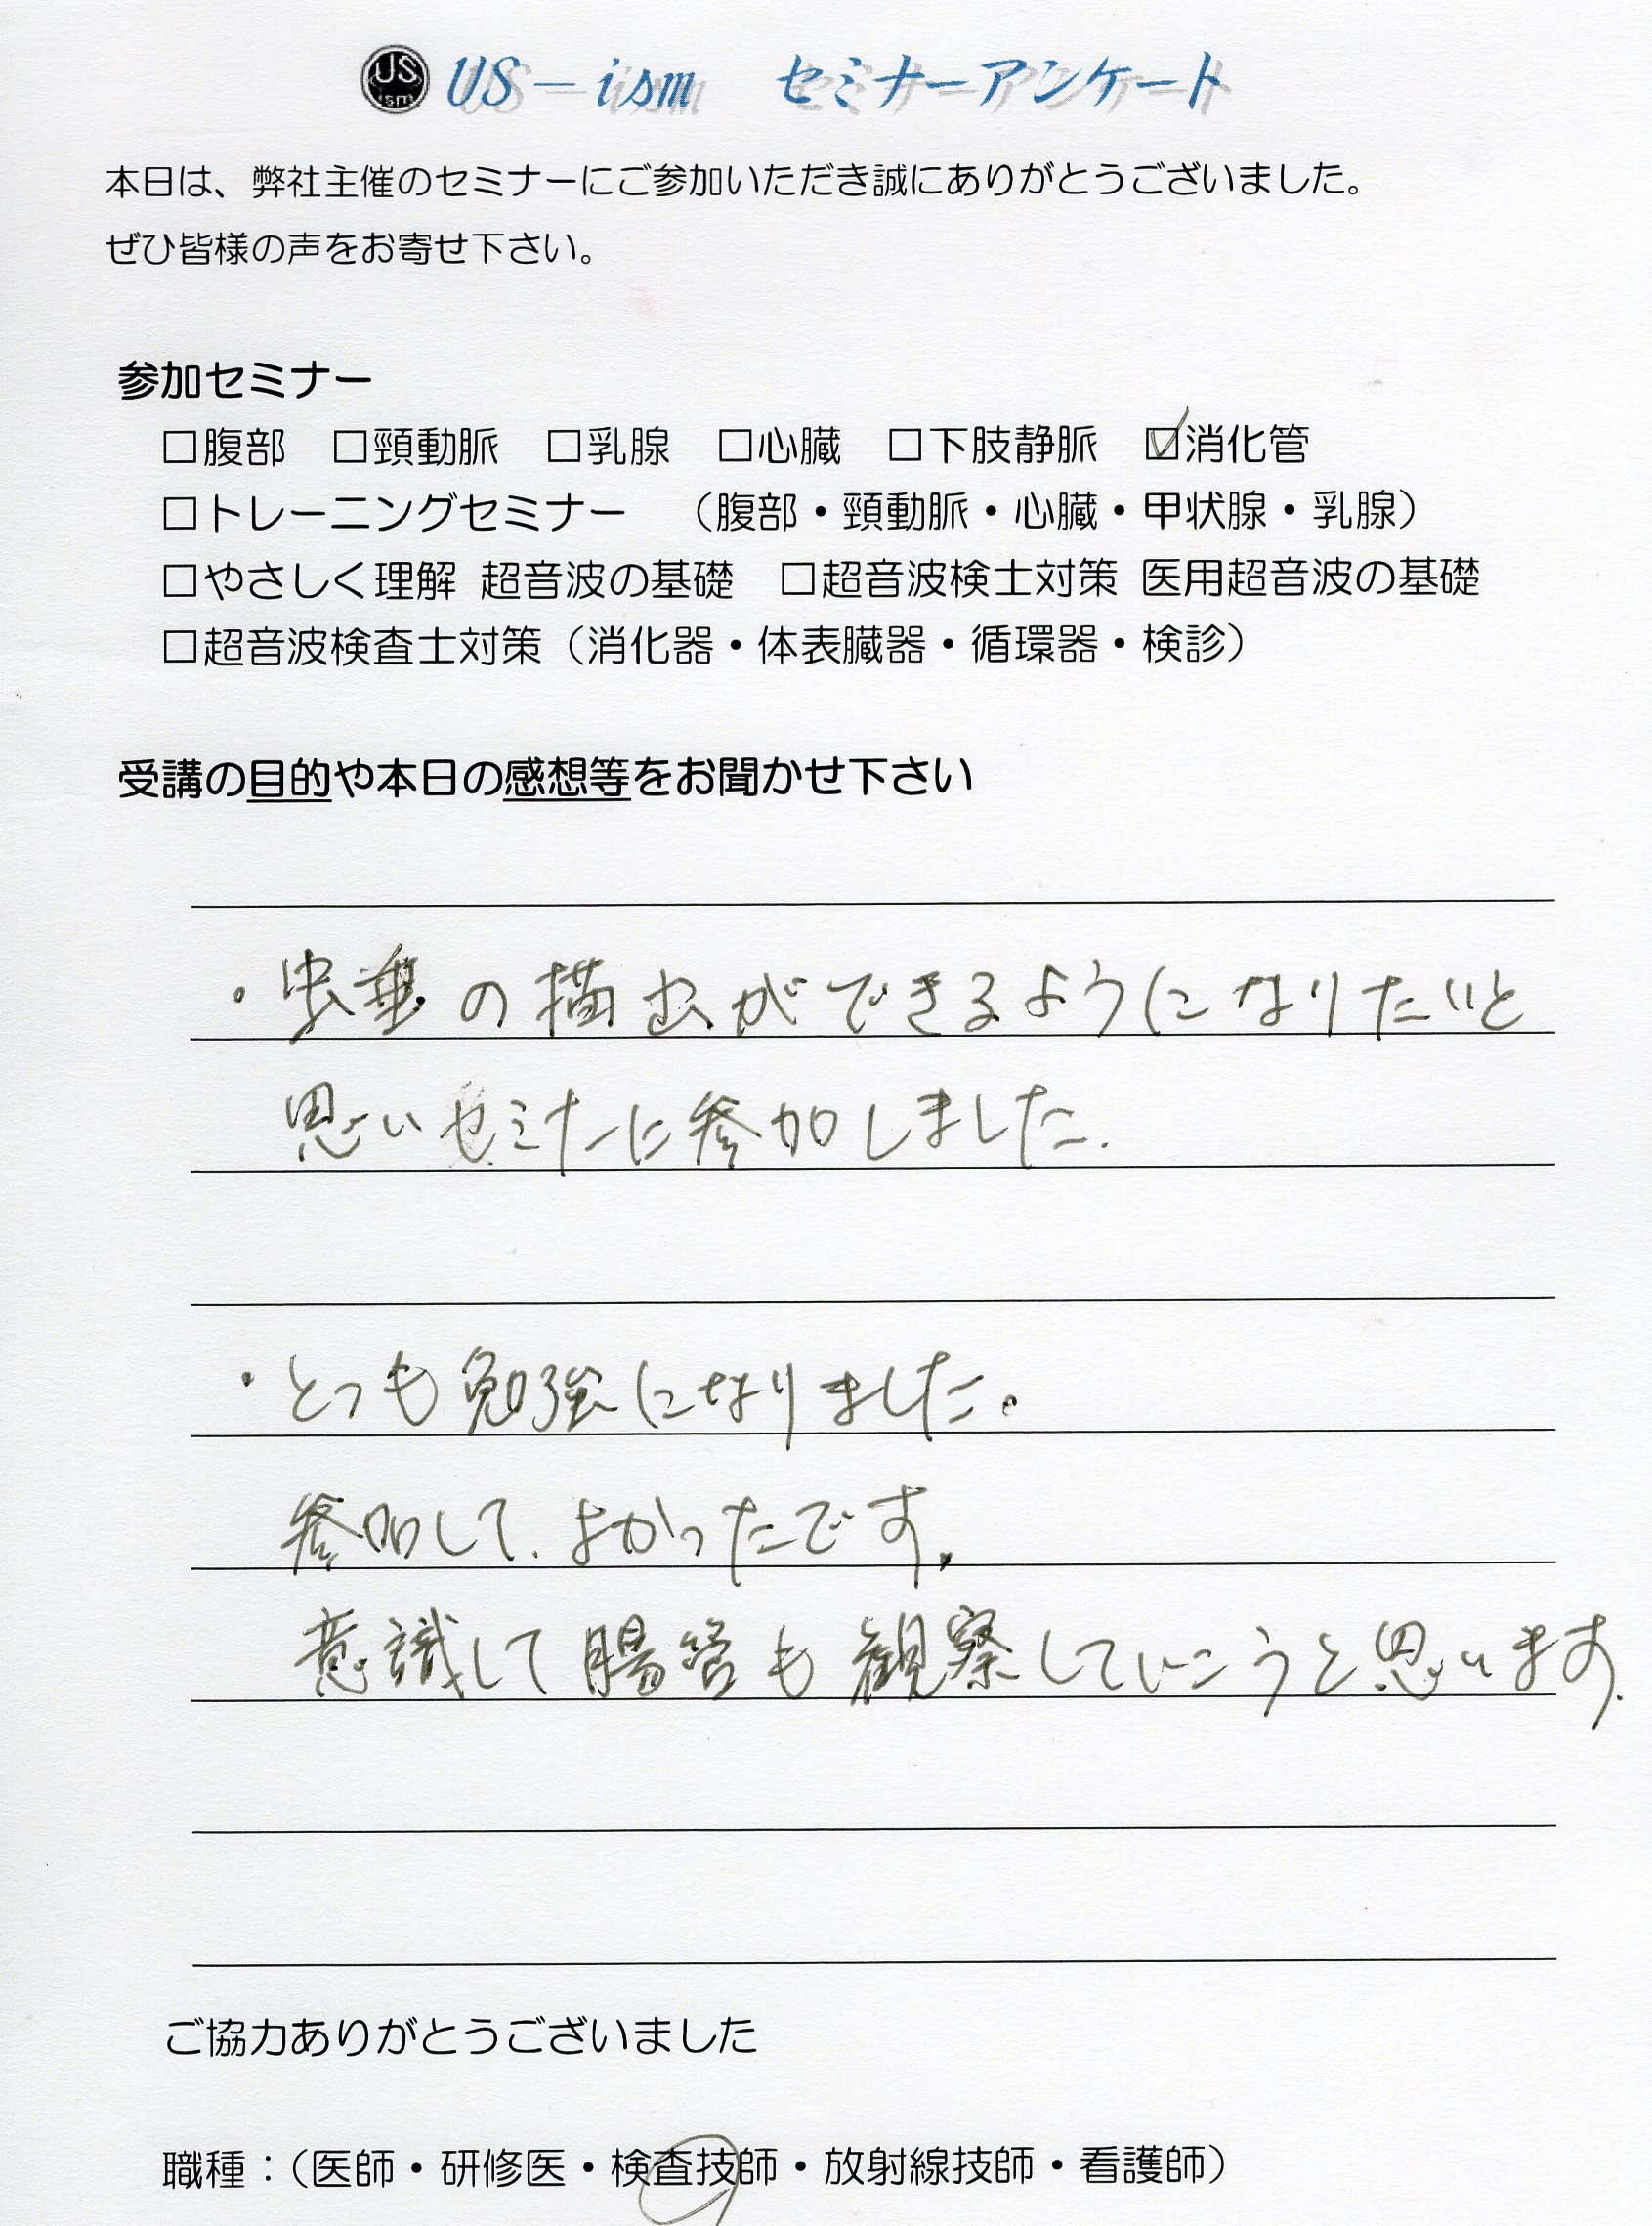 US ism US-ism セミナーアンケート
本日は、弊社主催のセミナーにご参加いただき誠にありがとうございました。
ぜひ皆様の声をお寄せ下さい。
参加セミナー
□腹部 □頸動脈 □乳腺 □心臓 □下肢静脈 ☑消化管
□トレーニングセミナー （腹部・頸動脈・心臓・甲状腺・乳腺）
□やさしく理解 超音波の基礎 □超音波検士対策 医用超音波の基礎
□超音波検査士対策（消化器・体表臓器・循環器・検診）
受講の目的や本日の感想等をお聞かせ下さい
・虫垂の描出ができるようになりたいと
思いセミナーに参加しました.
・とっも勉強になりました。
参加して、よかったです。
意識して腸管も観察していこうと思います.
ご協力ありがとうございました
職種：（医師・研修医・検査技師・放射線技師・看護師）